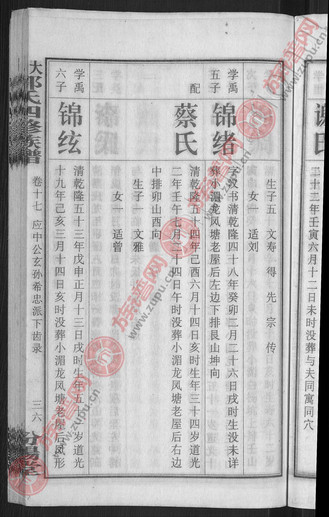 谢氏
三十二年壬寅六月十二日未时没葬与夫同寓同穴
生子五 文寿 得 先 宗 传
女一 适刘
学禹
五子
锦绪
字授书清乾隆四十八年癸卯二月二十六日戌时生没未详
葬小湄龙凤塘老屋后左边下排艮山坤向
配
蔡氏
清乾隆五十四年己酉六月十四日亥时生年三十四岁道光
二年壬午七月二十四日午时没葬小湄龙凤塘老屋后右边
中排卯山酉向
生子一 文雅
女一 适曾
学禹
六子
锦炫
清乾隆五十三年戊申正月十三日戌时生年五十二岁道光
十九年己亥三月十四日亥时没葬小湄龙凤塘老屋后凤形
大邱氏四修族谱
卷十七 应中公玄孙希忠派下齿录
三六
族谱网
www.zupu.cn